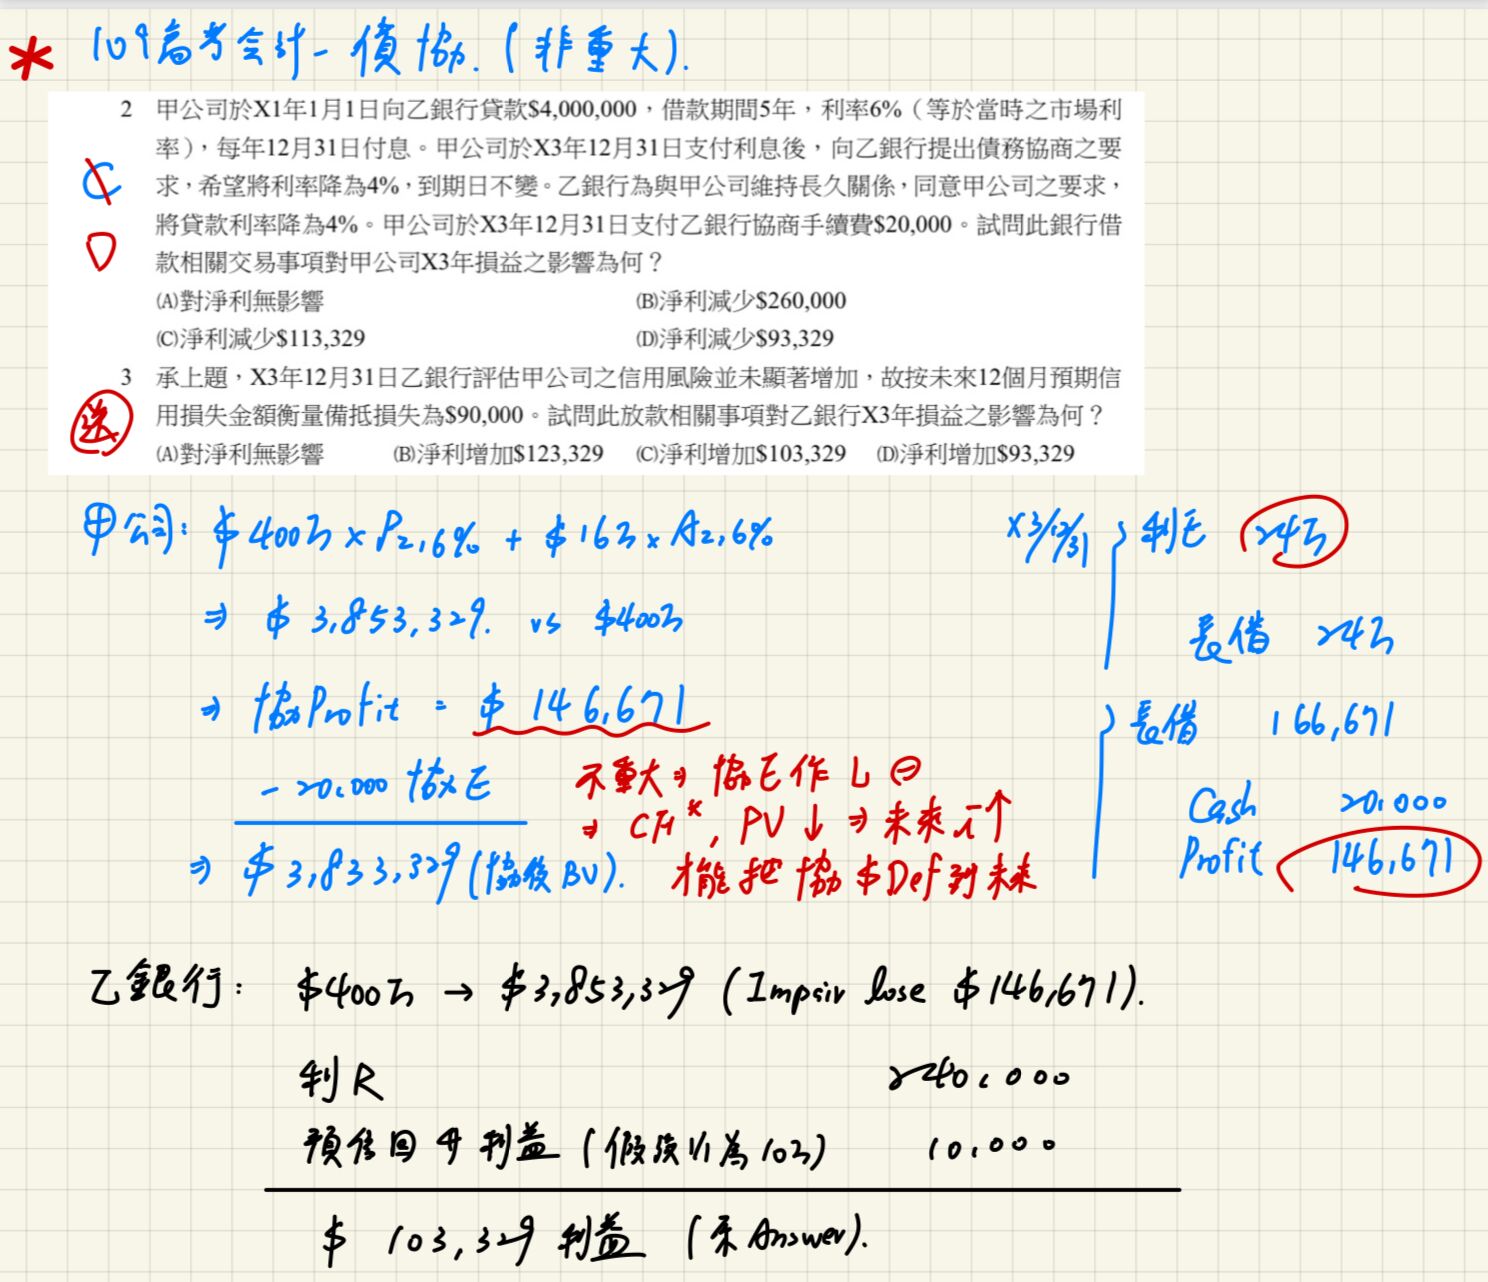 * 109高考会計-債協.(非重大).
2 甲公司於X1年1月1日向乙銀行貸款$4,000,000,借款期間5年,利率6%(等於當時之市場利
率),每年12月31日付息。甲公司於X3年12月31日支付利息後,向乙銀行提出債務協商之要
C 求,希望將利率降為4%,到期日不變。乙銀行為與甲公司維持長久關係,同意甲公司之要求,
將貸款利率降為4%。甲公司於X3年12月31日支付乙銀行協商手續費$20,000。試問此銀行借
D 款相關交易事項對甲公司X3年損益之影響為何?
(A)對淨利無影響 (B)淨利減少$260,000
(C)淨利減少$113,329 (D)淨利減少$93,329
3 承上題,X3年12月31日乙銀行評估甲公司之信用風險並未顯著增加,故按未來12個月預期信
送 用損失金額衡量備抵損失為$90,000。試問此放款相關事項對乙銀行X3年損益之影響為何?
(A)對淨利無影響 (B)淨利增加$123,329 (C)淨利增加$103,329 (D)淨利增加$93,329
甲公司: $400万 × P2,6% + $16万 × A2,6%
⇒ $3,853,329. vs $400万
⇒ 協Profit = $146,671
- 20,000 協E
⇒ $3,833,329(協後BV).
不重大⇒ 協E作 L ⊖
⇒ CF*, PV↓ ⇒ 未來i↑
才能把協$Def到未來
X3/12/31 利E 24万
長借 24万
長借 166,671
Cash 20,000
Profit 146,671
乙銀行: $400万 → $3,853,329 (Impair lose $146,671).
利R 240,000
預信回升利益(假設1/1為10万) 10,000
$ 103,329 利益 (系Answer).